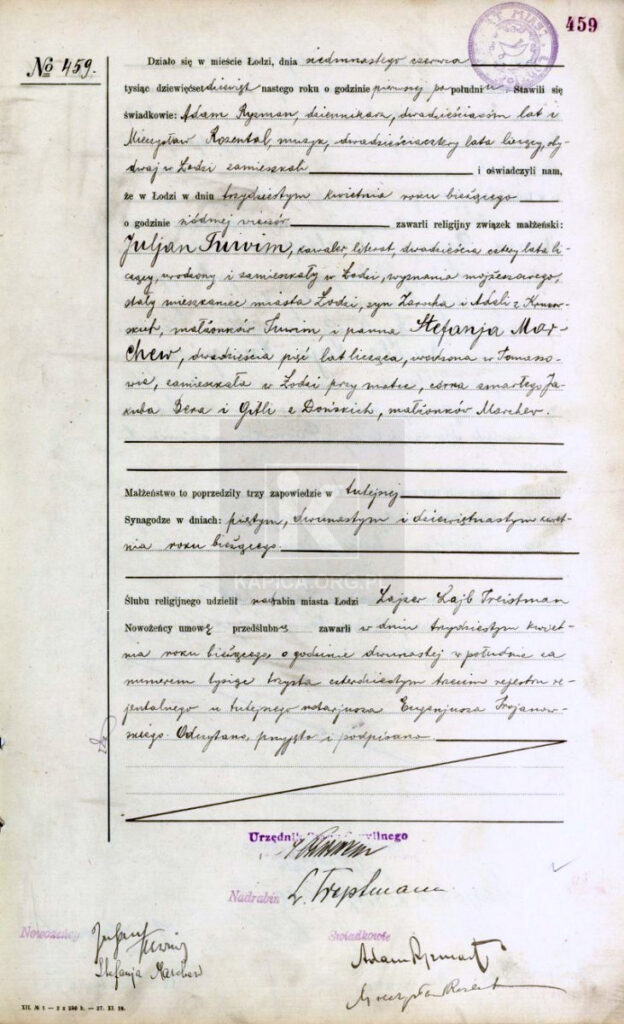 459
№ 459.
Działo się w mieście Łodzi, dnia siedmnastego czerwca
tysiąc dziewięćset dziewiętnastego roku o godzinie pierwszej po południu. Stawili się
świadkowie: Adam Ryzman, dziennikarz, dwadzieściaosiem lat i
Mieczysław Rozental, muzyk, dwadzieściacztery lata liczący, oby-
dwaj w Łodzi zamieszkali i oświadczyli nam,
że w Łodzi w dniu trzydziestym kwietnia roku bieżącego
o godzinie siódmej wieczór zawarli religijny związek małżeński:
Juljan Tuwim, kawaler, literat, dwadzieścia cztery lata li-
czący, urodzony i zamieszkały w Łodzi, wyznania mojżeszowego,
stały mieszkaniec miasta Łodzi, syn Izaocha i Adeli z Krukow-
skich, małżonków Tuwim, i panna Stefanja Mar-
chew, dwadzieścia pięć lat licząca, urodzona w Tomaszo-
wie, zamieszkała w Łodzi przy matce, córka zmarłego Ja-
kuba Bera i Gitli z Dońskich, małżonków Marchew.
Małżeństwo to poprzedziły trzy zapowiedzie w tutejszej
Synagodze w dniach: piątym, dwunastym i dziewiętnastym kwiet-
nia roku bieżącego.
KAPICA.ORG.PL
Ślubu religijnego udzielił nadrabin miasta Łodzi Lajzer Lajb Treistman
Nowożeńcy umowę przedślubną zawarli w dniu trzydziestym kwiet-
nia roku bieżącego, o godzinie dwunastej w południe za
numerem tysiąc trzysta czterdziestym trzecim rejestru re-
jentalnego u tutejszego notarjusza Eugenjusza Trojanow-
skiego. Odczytano, przyjęto i podpisano.
Urzędnik
Nadrabin L. Treistmann
Nowożeńcy Juljan Tuwim
Stefanja Marchew
Świadkowie
Adam Ryzman
Mieczysław Rozental
XII. № 1 — 2 x 250 k. — 27. XI. 18.